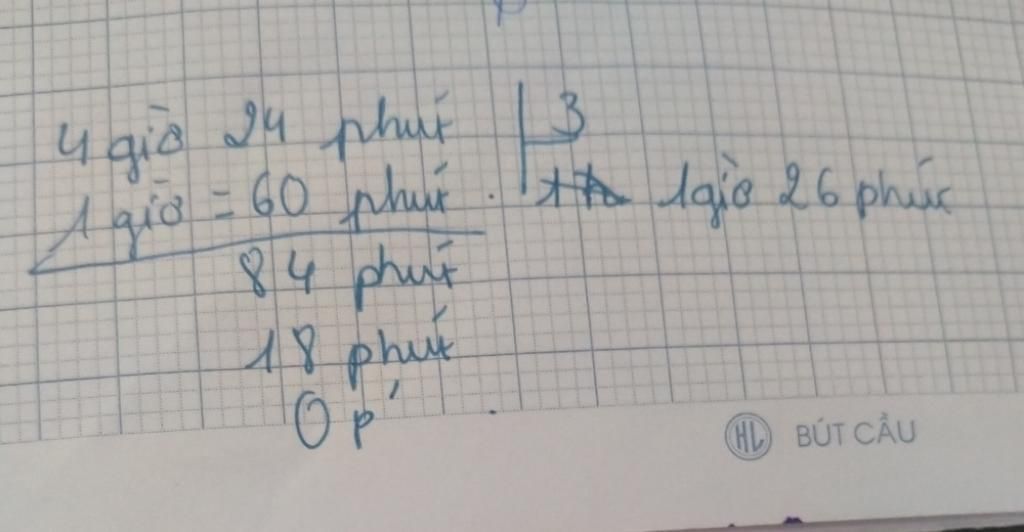 4 giờ 24 phút 3
1 giờ = 60 phút . 1 giờ 26 phút
84 phút
18 phút
0 p'
HL BÚT CẦU